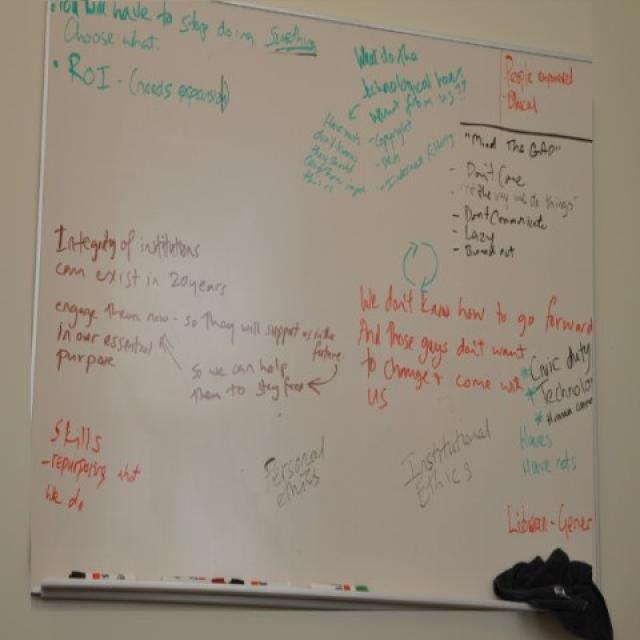 You will have to stop doing Something
Choose what.
• ROI - (needs expansion)
What do the
technological haves
want from us??
- copyright
- Internet filtering
People empowered
- Ethical
"Mind The GAP"
- Don't Care
"the way we do things"
- Don't Communicate
- Lazy
- Burned out
Integrity of institutions
can exist in 20 years
engage them now - so They will support us in the
future
in our essential
purpose
so we can help
them to stay free
We don't know how to go forward
And those guys don't want
to change & come with
us
* Civic duty
* Technolo
* Human
Haves
Have nots
Skills
- repurposing what
we do
Personal
ethics
Institutional
Ethics
Librar - Gener